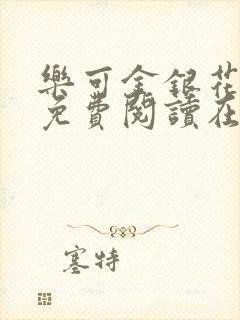 樂可金銀花
免費閱讀在
塞特